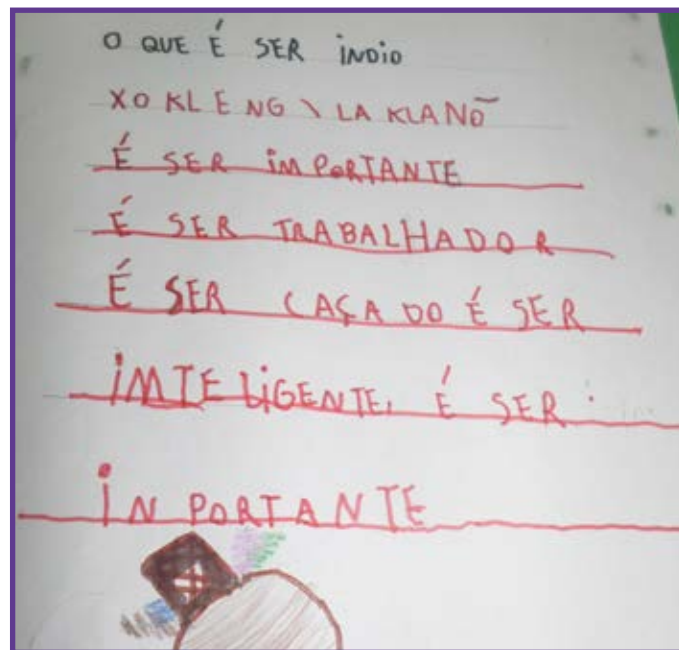 O QUE É SER ÍNDIO
XO KLENG \ LA KLANÕ
É SER IMPORTANTE
É SER TRABALHADOR
É SER CAÇA DO É SER
IMTELIGENTE, É SER:
IN PORTANTE